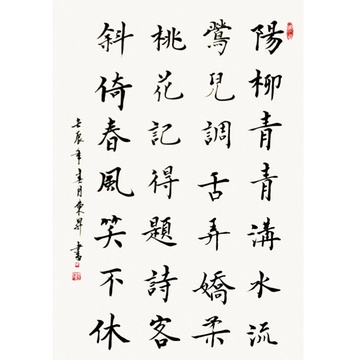 陽柳青青溝水流
鶯兒調舌弄嬌柔
桃花記得題詩客
斜倚春風笑不休
壬辰年春月東昇書